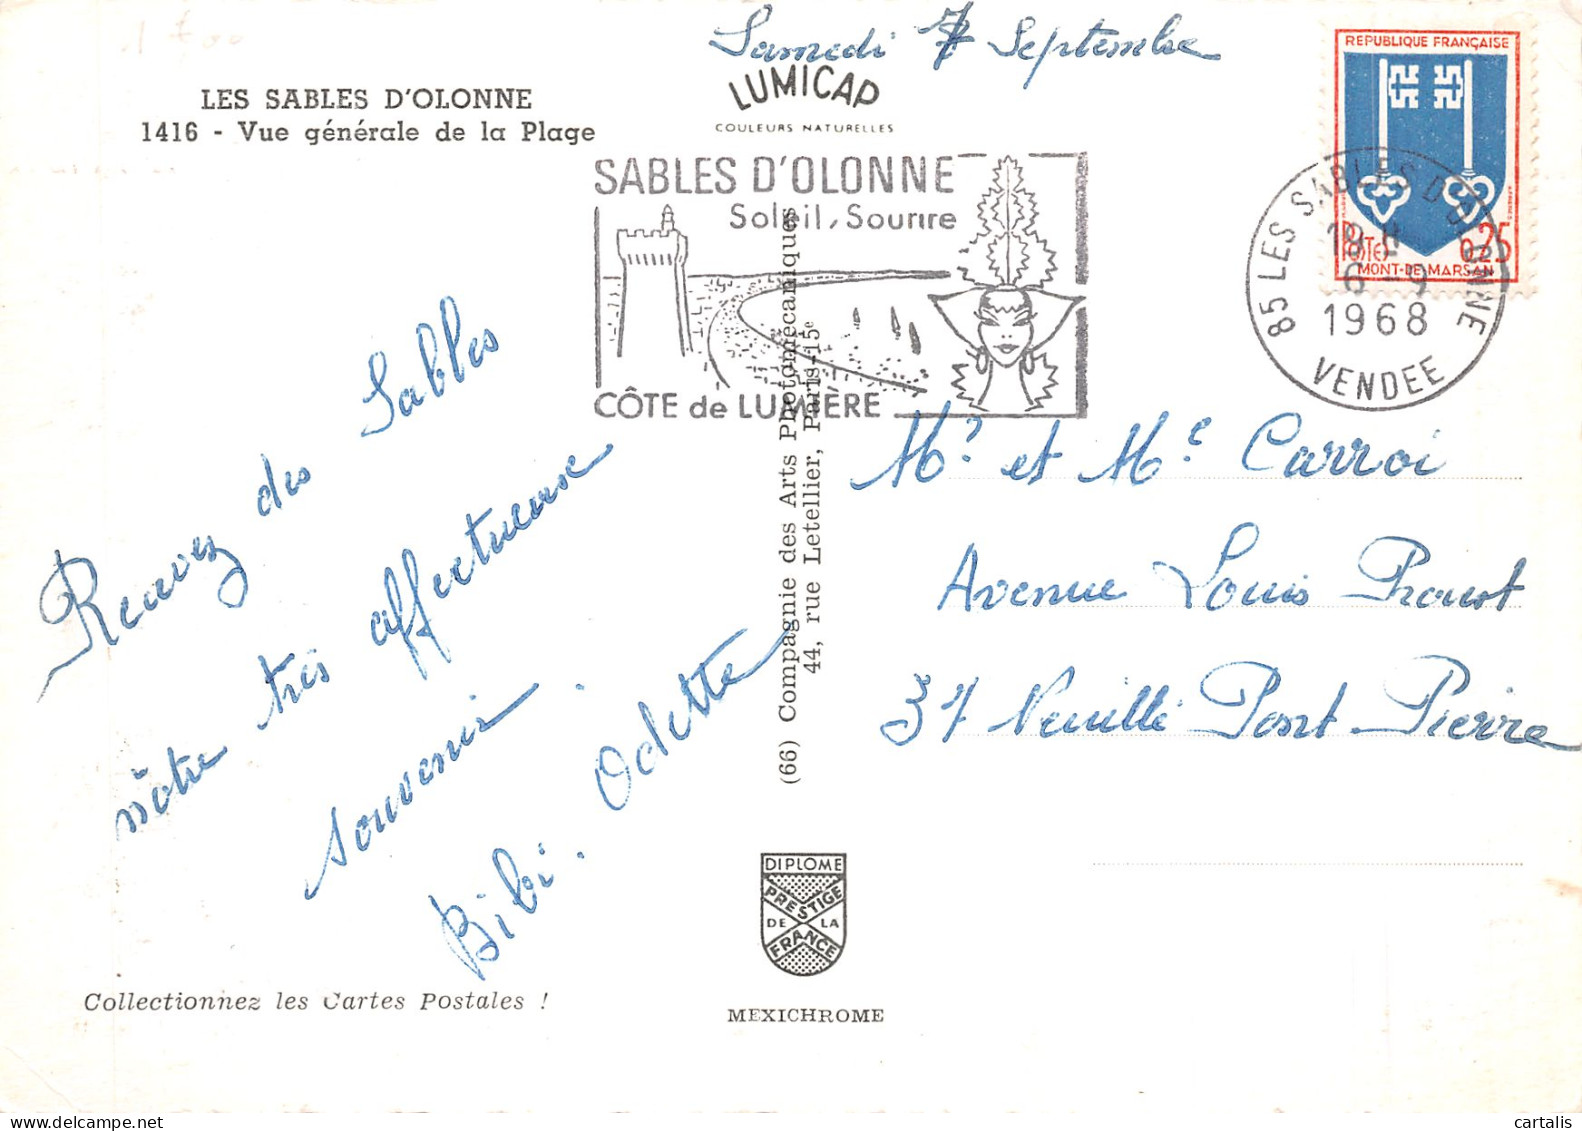 Samedi 7 Septembre
LES SABLES D'OLONNE
1416 - Vue générale de la Plage
LUMICAP
COULEURS NATURELLES
SABLES D'OLONNE
Soleil, Sourire
CÔTE de LUMIÈRE
REPUBLIQUE FRANÇAISE
POSTES 0,25
MONT-DE-MARSAN
85 LES SABLES D'OLONNE
18 H
6 - 9
1968
VENDEE
Recevez des Sables
nôtre très affectueuse
souvenir.
Bibi. Odette
(66) Compagnie des Arts Photomécaniques
44, rue Letellier, Paris-15e
Mr et Me Carroi
Avenue Louis Proust
37 Neuillé Pont-Pierre
DIPLOME
PRESTIGE
DE LA
FRANCE
MEXICHROME
Collectionnez les Cartes Postales !
cartalis